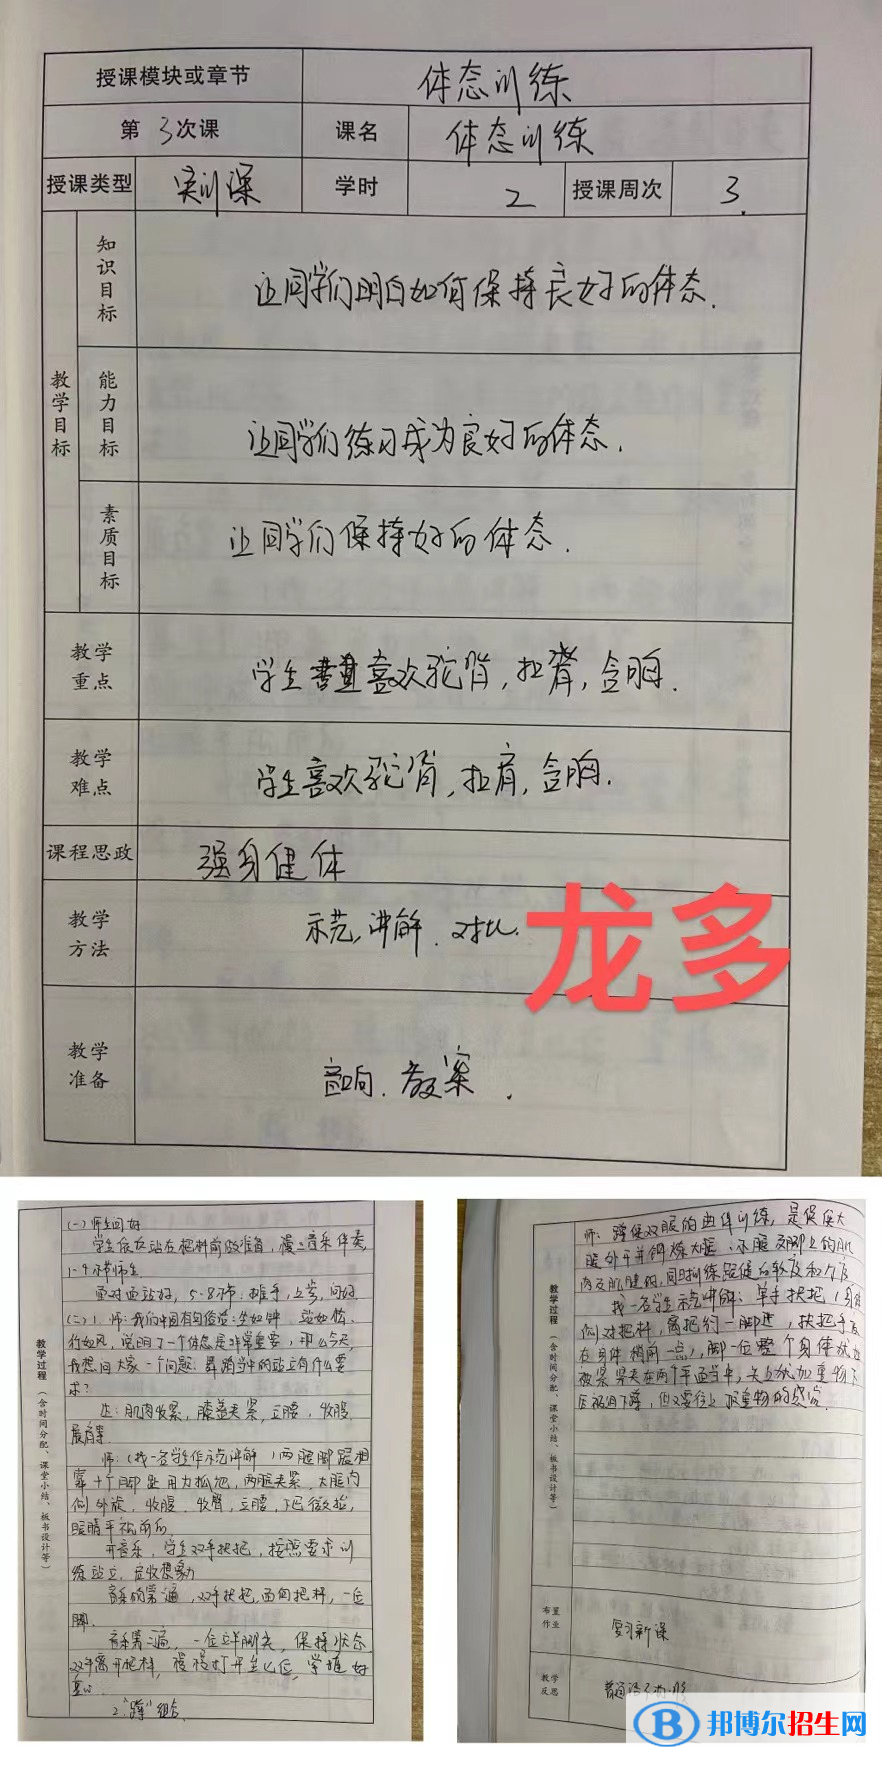 授课模块或章节 体态训练
第 3 次课 课名 体态训练
授课类型 实训课 学时 2 授课周次 3.
教学目标
知识目标 让同学们明白如何保持良好的体态.
能力目标 让同学们练习成为良好的体态.
素质目标 让同学们保持好的体态.
教学重点 学生喜欢驼背,扣肩,含胸.
教学难点 学生喜欢驼背,扣肩,含胸.
课程思政 强身健体
教学方法 示范,讲解.对比.
龙多
教学准备 音响.教案.
教学过程(含时间分配、课堂小结、板书设计等)
(一)师生问好
学生依次站在把杆前做准备,慢二音乐伴奏,
1-4小节师生
面对面站好,5-8小节:推手,上步,问好
(二)1.师:我们中国有句俗语:坐如钟,站如松,
行如风,说明了一个体态是非常重要,那么今天,
我想问大家一个问题:舞蹈当中的站立有什么要
求?
生:肌肉收紧,膝盖夹紧,立腰,收腹,
展肩等.
师:(找一名学生作示范讲解)两腿脚跟相
靠十个脚趾用力抓地,两腿夹紧,大腿内
侧外旋,收腹,收臀,立腰,下巴微抬,
眼睛平视前方.
开音乐,学生双手扶把,按照要求训
练站立,
音乐的第一遍,双手扶把,面向把杆,一位
脚.
音乐第二遍,一位立半脚尖,保持状态
双手离开把杆,慢慢打开至七位,掌握好
重心.
2."蹲"组合.
教学过程(含时间分配、课堂小结、板书设计等)
师:蹲使双腿的曲伸训练,是促使大
腿外开并锻炼大腿;小腿及脚上的肌
肉及肌腱的,同时训练跟腱的软度和
找一名学生示范讲解:单手扶把(身
侧对把杆,离把约一脚距,扶把手放
在身体稍前一点),脚一位整个身体犹如
被紧紧夹在两个平面当中,头上犹如重物下
压被迫下蹲,但又要往上顶重物的感觉.
布置作业 复习新课
教学反思
邦博尔招生网